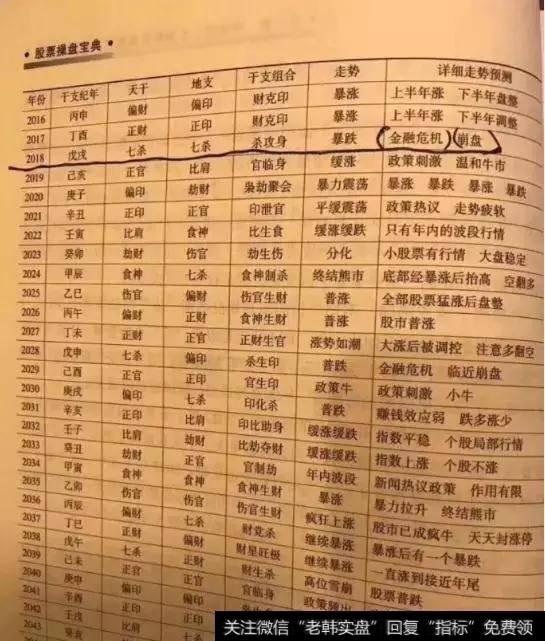 • 股票操盘宝典 •
年份 干支纪年 天干 地支 干支组合 走势 详细走势预测
2016 丙申 偏财 偏印 财克印 暴涨 上半年涨 下半年盘整
2017 丁酉 正财 正印 财克印 暴涨 上半年涨 下半年调整
2018 戊戌 七杀 七杀 杀攻身 暴跌 金融危机 崩盘
2019 己亥 正官 比肩 官临身 缓涨 政策刺激 温和牛市
2020 庚子 偏印 劫财 枭劫聚会 暴力震荡 暴涨 暴跌 暴涨 暴跌
2021 辛丑 正印 正官 印泄官 平缓震荡 政策热议 走势疲软
2022 壬寅 比肩 食神 比生食 缓涨缓跌 只有年内的波段行情
2023 癸卯 劫财 伤官 劫生伤 分化 小股票有行情 大盘稳定
2024 甲辰 食神 七杀 食神制杀 终结熊市 底部经暴涨后抬高 空翻多
2025 乙巳 伤官 偏财 伤官生财 普涨 全部股票猛涨后盘整
2026 丙午 偏财 正财 食神生财 普涨 股市普涨
2027 丁未 正财 正官 正财生官 涨势如潮 大涨后被调控 注意多翻空
2028 戊申 七杀 偏印 杀生印 普跌 金融危机 临近崩盘
2029 己酉 正官 正印 官生印 政策牛 政策刺激 小牛
2030 庚戌 偏印 七杀 印化杀 普跌 赚钱效应弱 跌多涨少
2031 辛亥 正印 比肩 印比助身 缓涨缓跌 指数平稳 个股局部行情
2032 壬子 比肩 劫财 比劫夺财 缓涨缓跌 指数上涨 个股不涨
2033 癸丑 劫财 正官 官制劫 年内波段 新闻热议政策 作用有限
2034 甲寅 食神 食神 食神生财 暴涨 暴力拉升 终结熊市
2035 乙卯 伤官 伤官 伤官生财 疯狂上涨 股市已成疯牛 天天封涨停
2036 丙辰 偏财 七杀 财党杀 继续暴涨 暴涨后有一个暴跌
2037 丁巳 正财 偏财 财星旺极 继续暴涨 一直涨到接近年尾
2038 戊午 七杀 正财 财生杀 高位雪崩 股票暴跌
2039 己未 正官 正官 官临身 政策频出
2040 庚申 偏印 偏印
2041 辛酉 正印 正印
2042 壬戌
2043
关注微信“老韩实盘”回复“指标”免费领